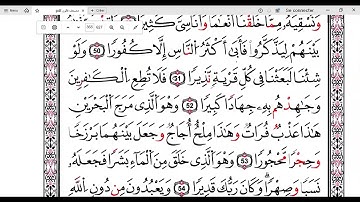 Se connecter
وَنُسْقِيَهُۥ مِمَّا خَلَقْنَآ أَنْعَٰمًا وَأَنَاسِىَّ كَثِيرًا
بَيْنَهُمْ لِيَذَّكَّرُوا۟ فَأَبَىٰٓ أَكْثَرُ ٱلنَّاسِ إِلَّا كُفُورًا 50 وَلَوْ
شِئْنَا لَبَعَثْنَا فِى كُلِّ قَرْيَةٍ نَّذِيرًا 51 فَلَا تُطِعِ ٱلْكَٰفِرِينَ
وَجَٰهِدْهُم بِهِۦ جِهَادًا كَبِيرًا 52 وَهُوَ ٱلَّذِى مَرَجَ ٱلْبَحْرَيْنِ
هَٰذَا عَذْبٌ فُرَاتٌ وَهَٰذَا مِلْحٌ أُجَاجٌ وَجَعَلَ بَيْنَهُمَا بَرْزَخًا
وَحِجْرًا مَّحْجُورًا 53 وَهُوَ ٱلَّذِى خَلَقَ مِنَ ٱلْمَآءِ بَشَرًا فَجَعَلَهُۥ
نَسَبًا وَصِهْرًا وَكَانَ رَبُّكَ قَدِيرًا 54 وَيَعْبُدُونَ مِن دُونِ ٱللَّهِ